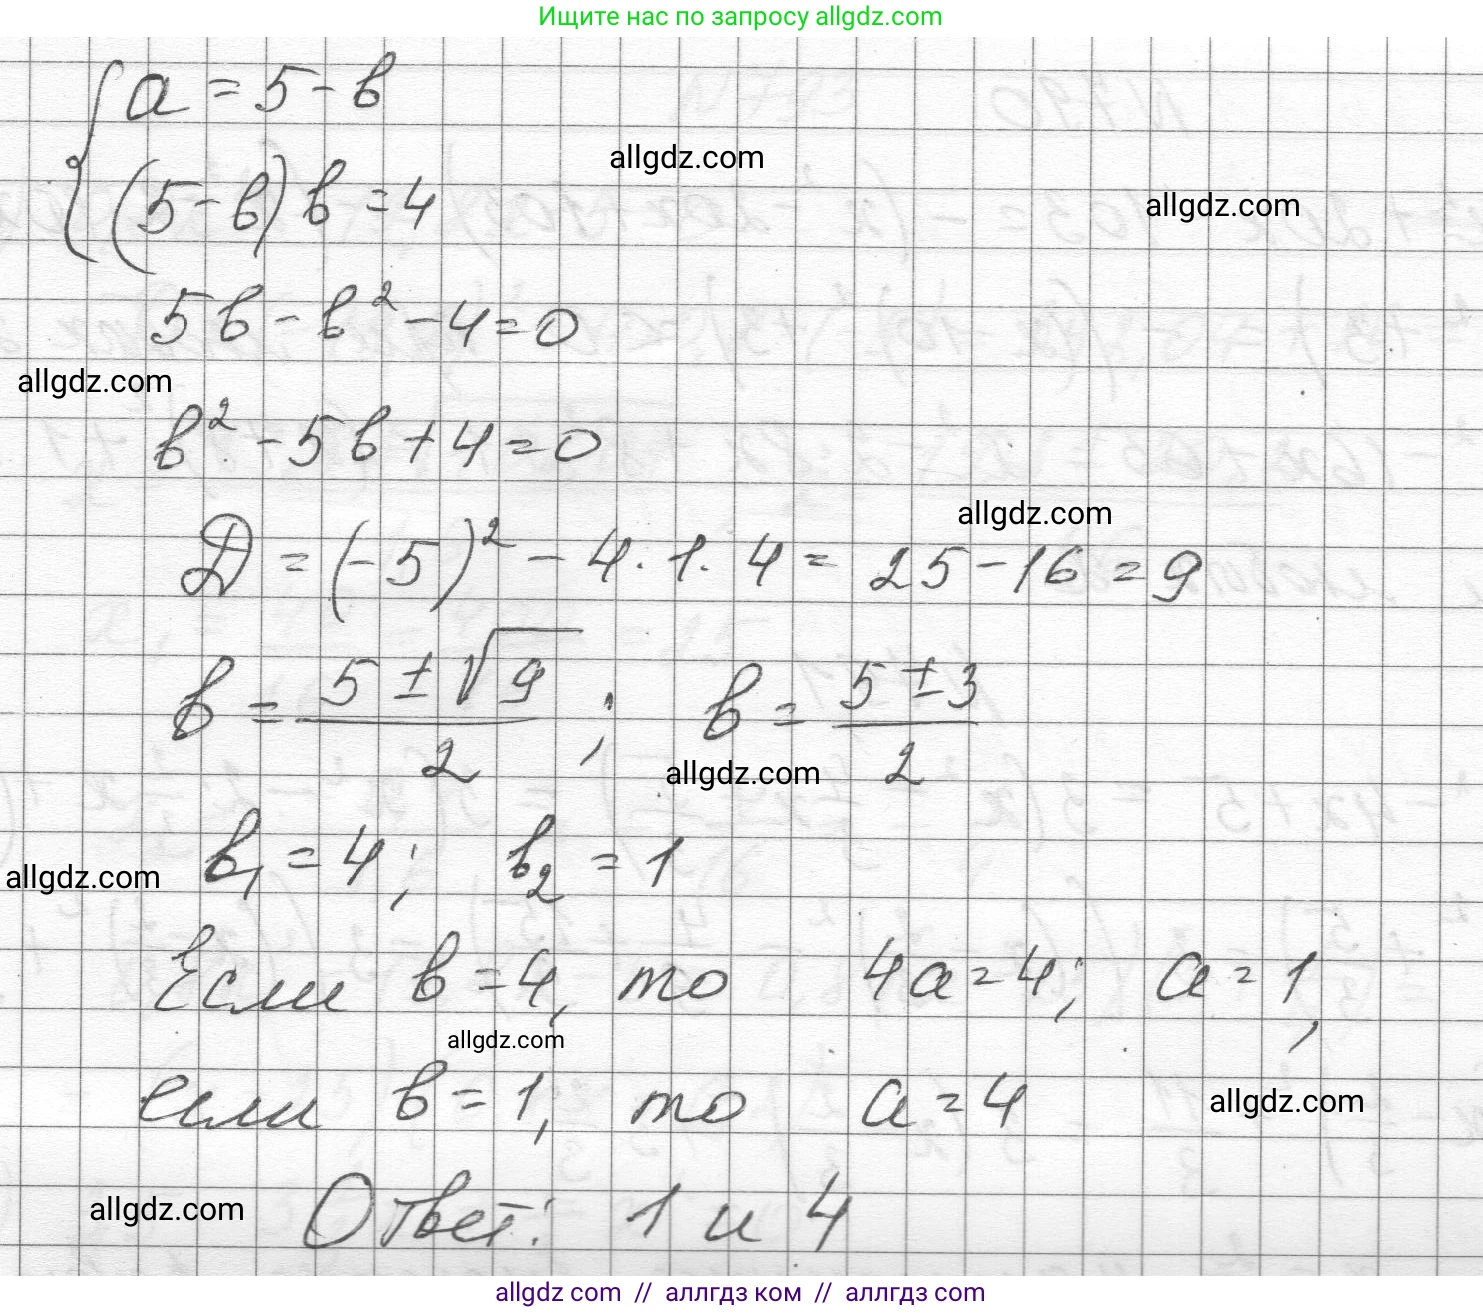 Ищите нас по запросу allgdz.com
a = 5 - в
allgdz.com
(5 - в) в = 4
allgdz.com
5в - в² - 4 = 0
allgdz.com
в² - 5в + 4 = 0
allgdz.com
Д = (-5)² - 4 · 1 · 4 = 25 - 16 = 9
в = (5 ± √9)/2 ; в = (5 ± 3)/2
allgdz.com
в₁ = 4; в₂ = 1
allgdz.com
Если в = 4, то 4a = 4; a = 1,
allgdz.com
если в = 1, то a = 4
allgdz.com
allgdz.com
Ответ: 1 и 4
allgdz.com // аллгдз ком // аллгдз com